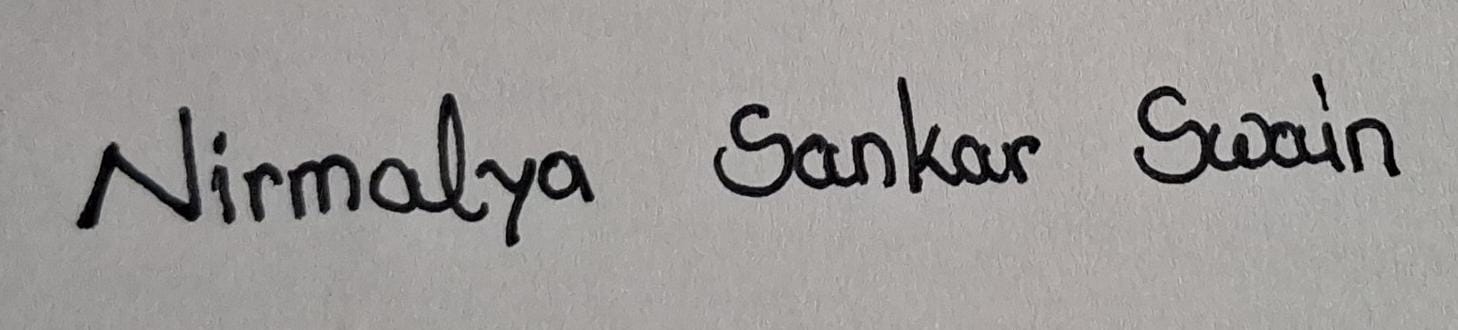 Nirmalya Sankar Swain